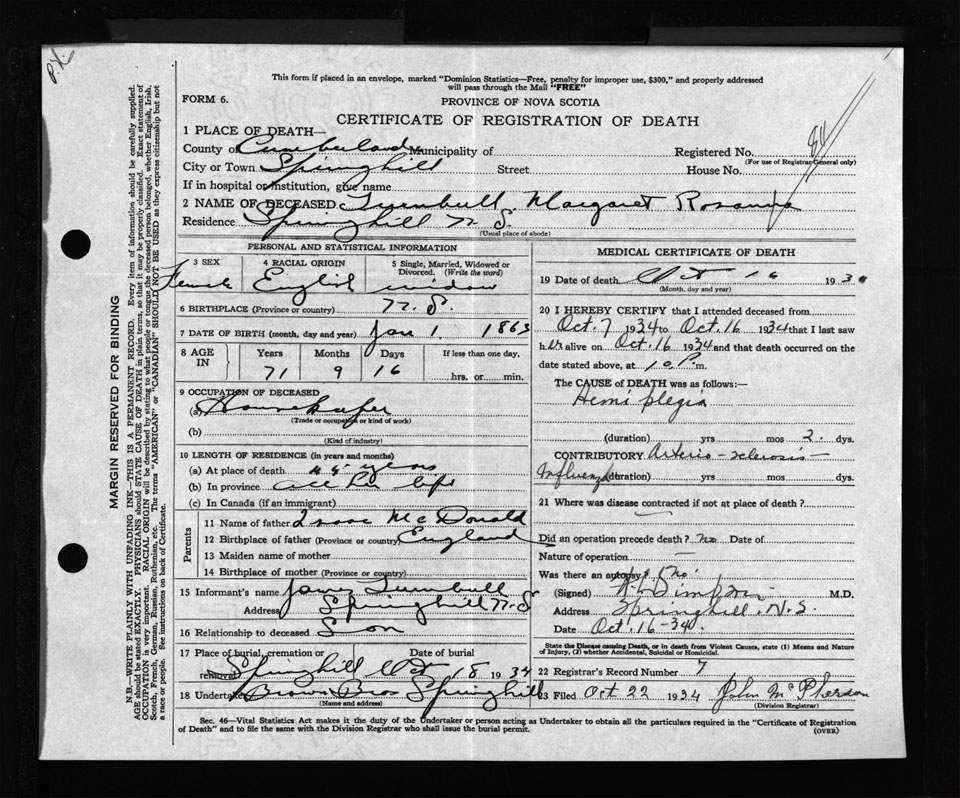 P.X.
This form if placed in an envelope, marked "Dominion Statistics—Free, penalty for improper use, $300," and properly addressed
will pass through the Mail "FREE"
FORM 6.
PROVINCE OF NOVA SCOTIA
CERTIFICATE OF REGISTRATION OF DEATH
1 PLACE OF DEATH—
County of Cumberland Municipality of Registered No.
(For use of Registrar General only)
City or Town Springhill Street House No.
If in hospital or institution, give name
2 NAME OF DECEASED Turnbull, Margaret Rosanna
Residence Springhill N.S.
(Usual place of abode)
PERSONAL AND STATISTICAL INFORMATION
3 SEX 4 RACIAL ORIGIN 5 Single, Married, Widowed or Divorced. (Write the word)
Female English widow
6 BIRTHPLACE (Province or country) N.S.
7 DATE OF BIRTH (month, day and year) Jan 1. 1863
8 AGE IN Years Months Days If less than one day,
71 9 16 hrs. or min.
9 OCCUPATION OF DECEASED
(a) Housekeeper
(Trade or occupation or kind of work)
(b)
(Kind of industry)
10 LENGTH OF RESIDENCE (in years and months)
(a) At place of death 45 years
(b) In province All her life
(c) In Canada (if an immigrant)
Parents
11 Name of father Isaac McDonald
12 Birthplace of father (Province or country) England
13 Maiden name of mother
14 Birthplace of mother (Province or country)
15 Informant's name Turnbull
Address Springhill N.S.
16 Relationship to deceased Son
17 Place of burial, cremation or removal Date of burial
Springhill Oct 18 1934
18 Undertaker Brown Bro Springhill
(Name and address)
MEDICAL CERTIFICATE OF DEATH
19 Date of death Oct 16 193
(Month, day and year)
20 I HEREBY CERTIFY that I attended deceased from
Oct. 7 1934 to Oct. 16 1934 that I last saw
her alive on Oct. 16 1934 and that death occurred on the
date stated above, at 10 P. m.
The CAUSE of DEATH was as follows:—
Hemi plegia
(duration) yrs mos 2. dys.
CONTRIBUTORY Arterio-sclerosis—
Influenza (duration) yrs mos dys.
21 Where was disease contracted if not at place of death?
Did an operation precede death? no Date of
Nature of operation —
Was there an autopsy? no.
(Signed) Simpson M.D.
Address Springhill, N.S.
Date Oct. 16-34.
State the Disease causing Death, or in death from Violent Causes, state (1) Means and Nature
of Injury, (2) whether Accidental, Suicidal or Homicidal.
22 Registrar's Record Number 7
23 Filed Oct 22 1934 John McPherson
(Division Registrar)
Sec. 46—Vital Statistics Act makes it the duty of the Undertaker or person acting as Undertaker to obtain all the particulars required in the "Certificate of Registration
of Death" and to file the same with the Division Registrar who shall issue the burial permit.
(OVER)
MARGIN RESERVED FOR BINDING
N.B.—WRITE PLAINLY WITH UNFADING INK—THIS IS A PERMANENT RECORD. Every item of information should be carefully supplied.
AGE should be stated EXACTLY. PHYSICIANS should STATE CAUSE OF DEATH in plain terms, so that it may be properly classified. Exact statement of
OCCUPATION is very important. RACIAL ORIGIN will be described by stating to what people or tongue the deceased person belonged, whether English, Irish,
Scotch, French, German, Russian, Ruthenian, etc. The terms "AMERICAN" or "CANADIAN" SHOULD NOT BE USED as they express citizenship but not
a race or people. See instructions on back of Certificate.